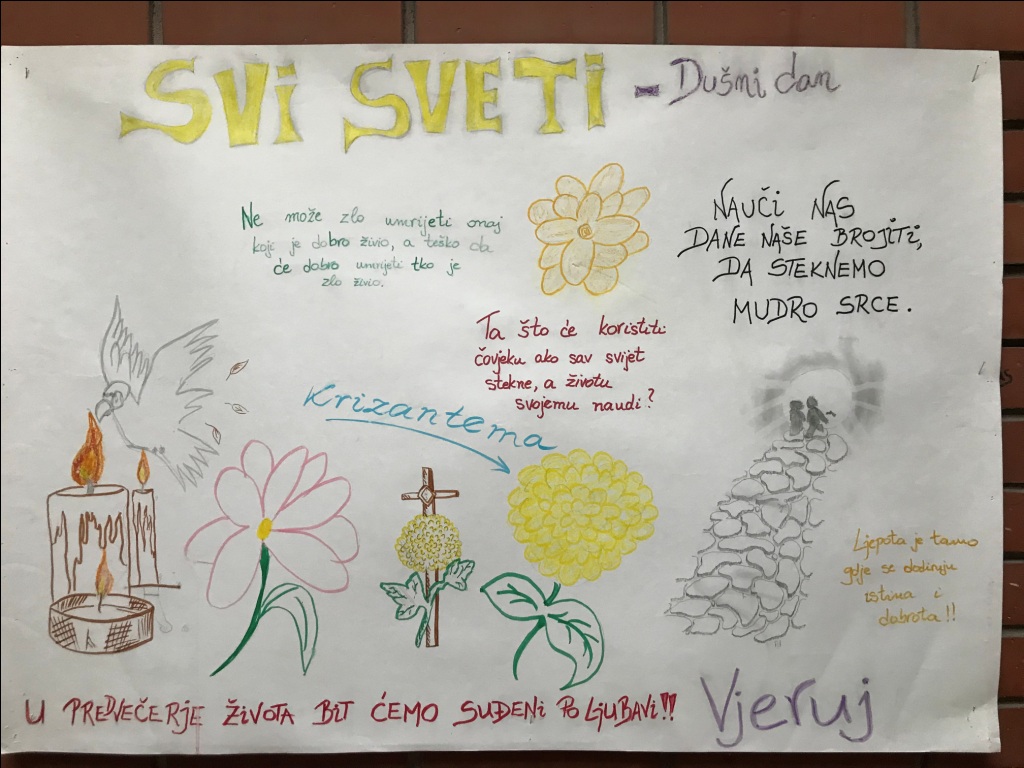 SVI SVETI - Dušni dan
Ne može zlo umrijeti onaj
koji je dobro živio, a teško da
će dobro umrijeti tko je
zlo živio.
NAUČI NAS
DANE NAŠE BROJITI,
DA STEKNEMO
MUDRO SRCE.
Ta što će koristiti
čovjeku ako sav svijet
stekne, a životu
svojemu naudi?
Krizantema
Ljepota je tamo
gdje se dodiruju
istina i
dobrota!!
U PREDVEČERJE ŽIVOTA BIT ĆEMO SUĐENI PO LJUBAVI!!
Vjeruj